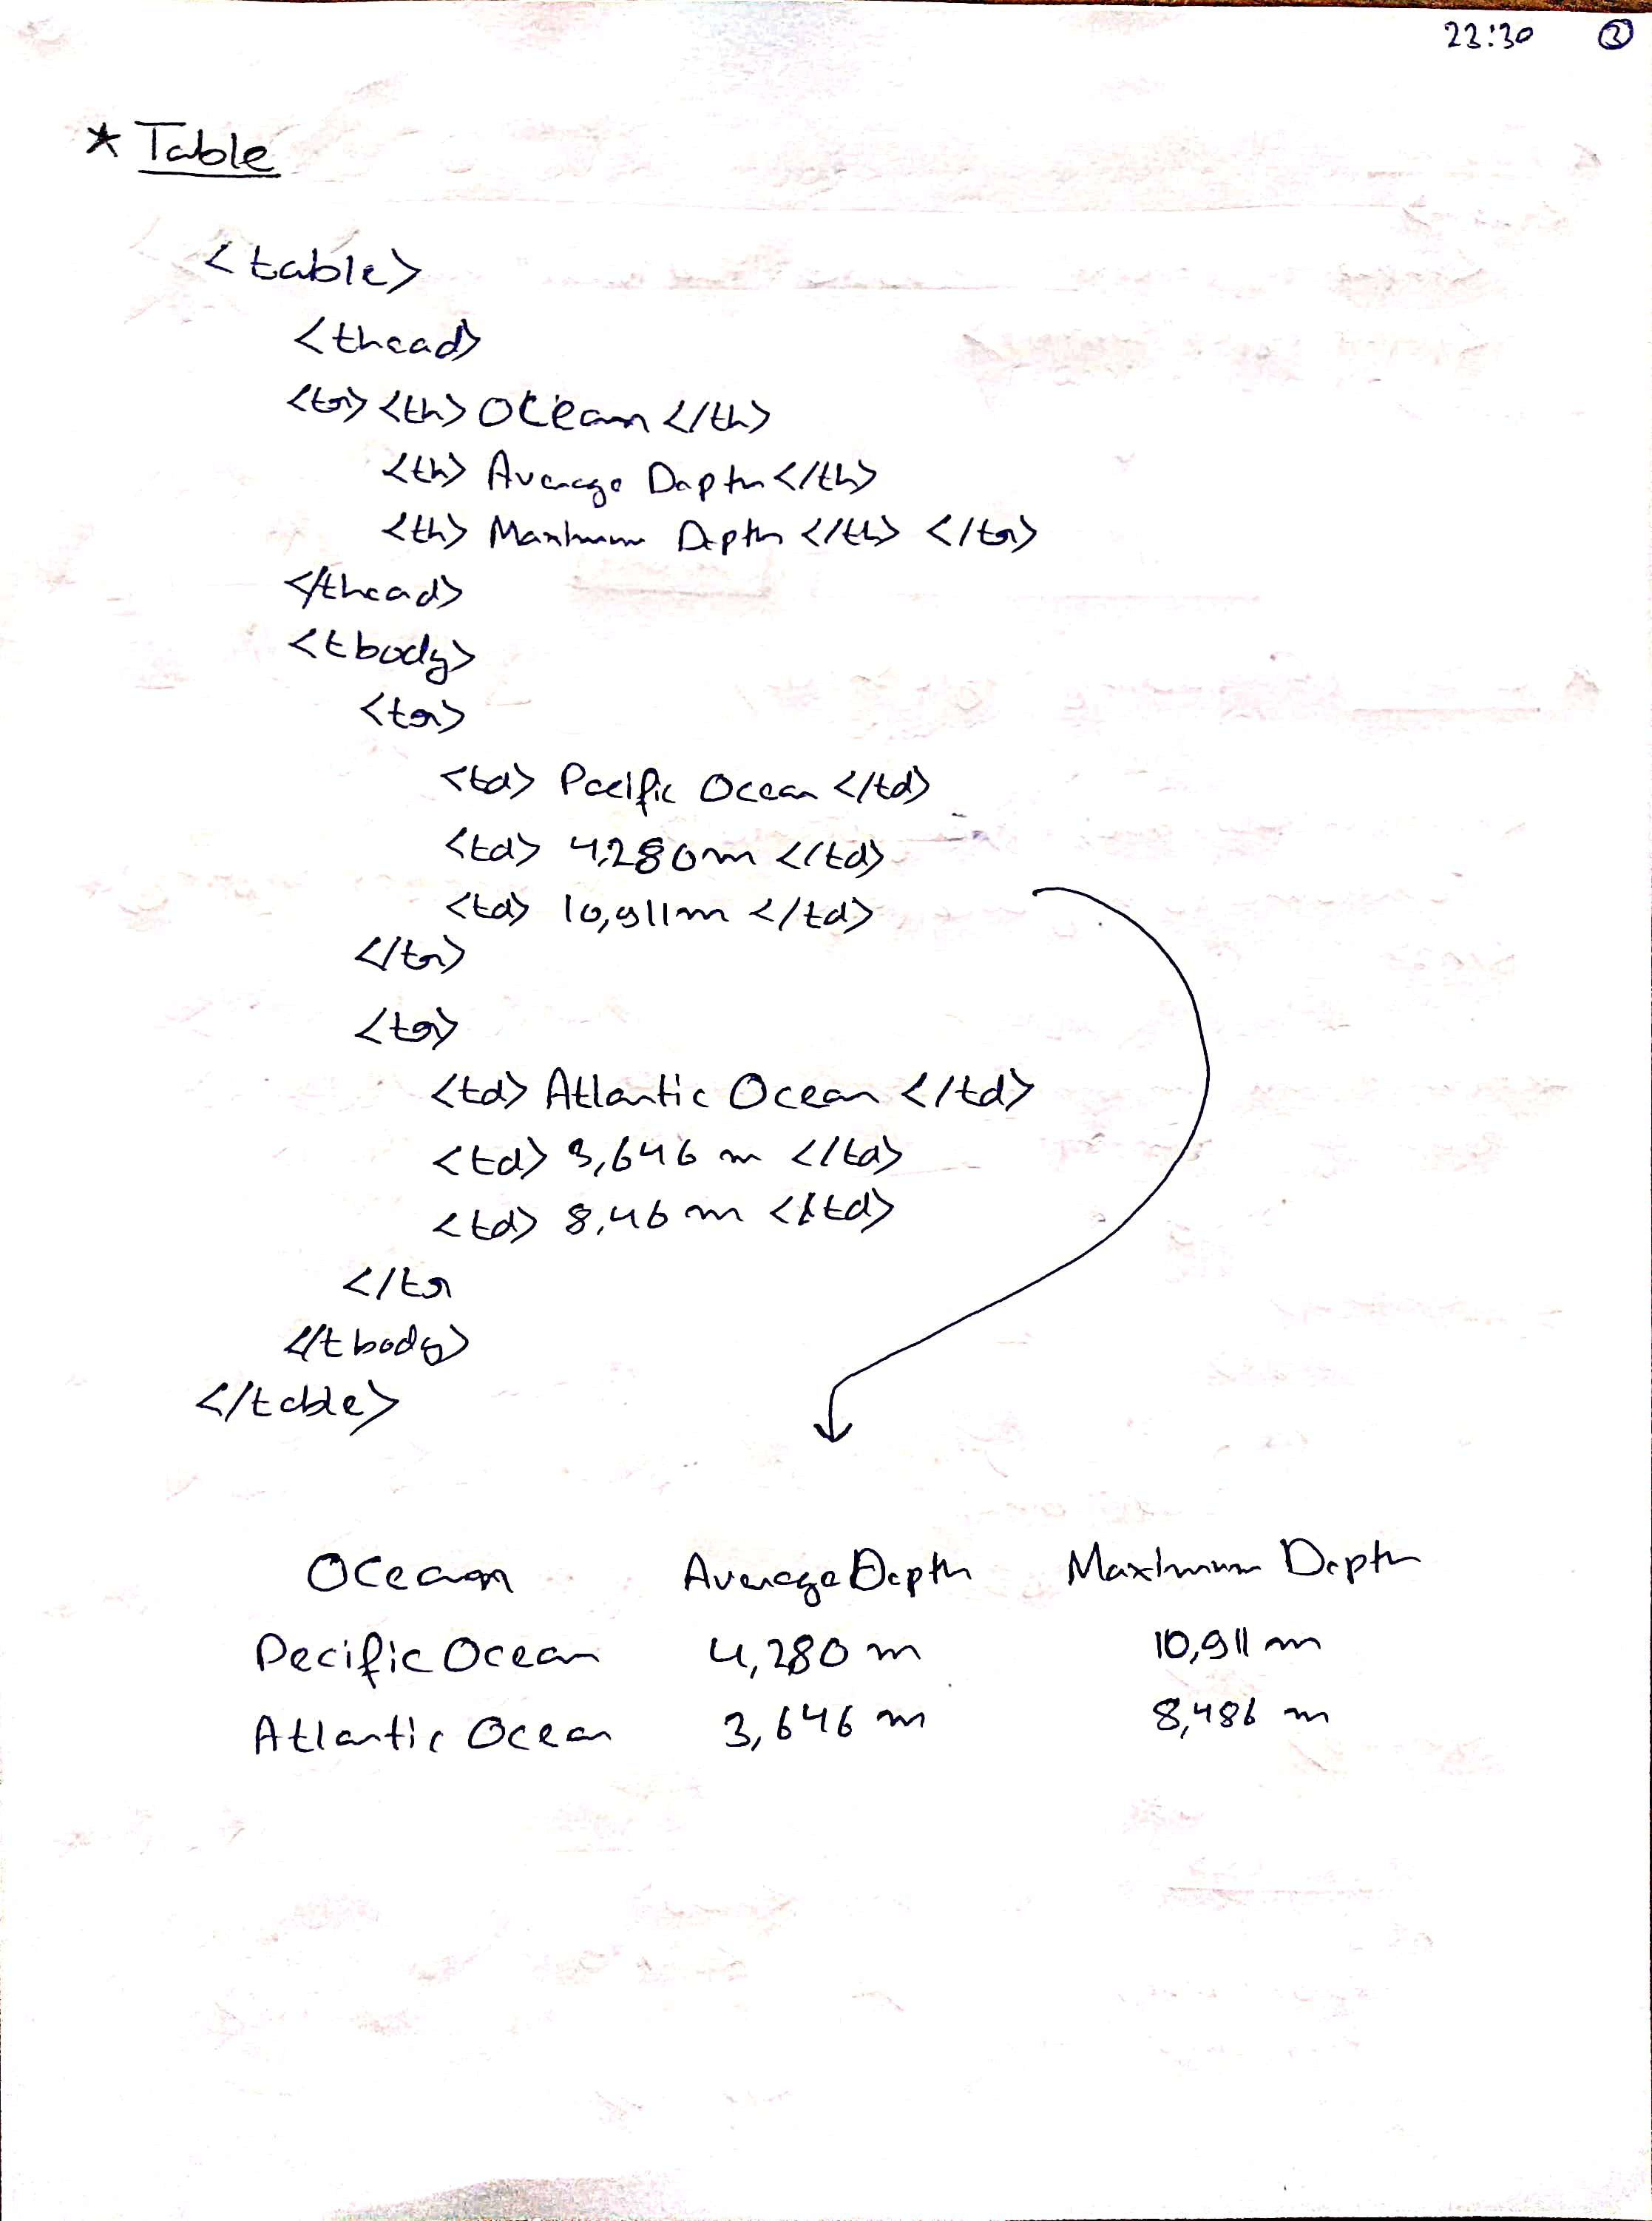 23:30 3
* Table
<table>
<thead>
<tr> <th> Ocean </th>
<th> Average Depth </th>
<th> Maximum Depth </th> </tr>
</thead>
<tbody>
<tr>
<td> Pacific Ocean </td>
<td> 4,280 m </td>
<td> 10,911 m </td>
</tr>
<tr>
<td> Atlantic Ocean </td>
<td> 3,646 m </td>
<td> 8,46 m </td>
</tr
</tbody>
</table>
Ocean Average Depth Maximum Depth
Pacific Ocean 4,280 m 10,911 m
Atlantic Ocean 3,646 m 8,486 m